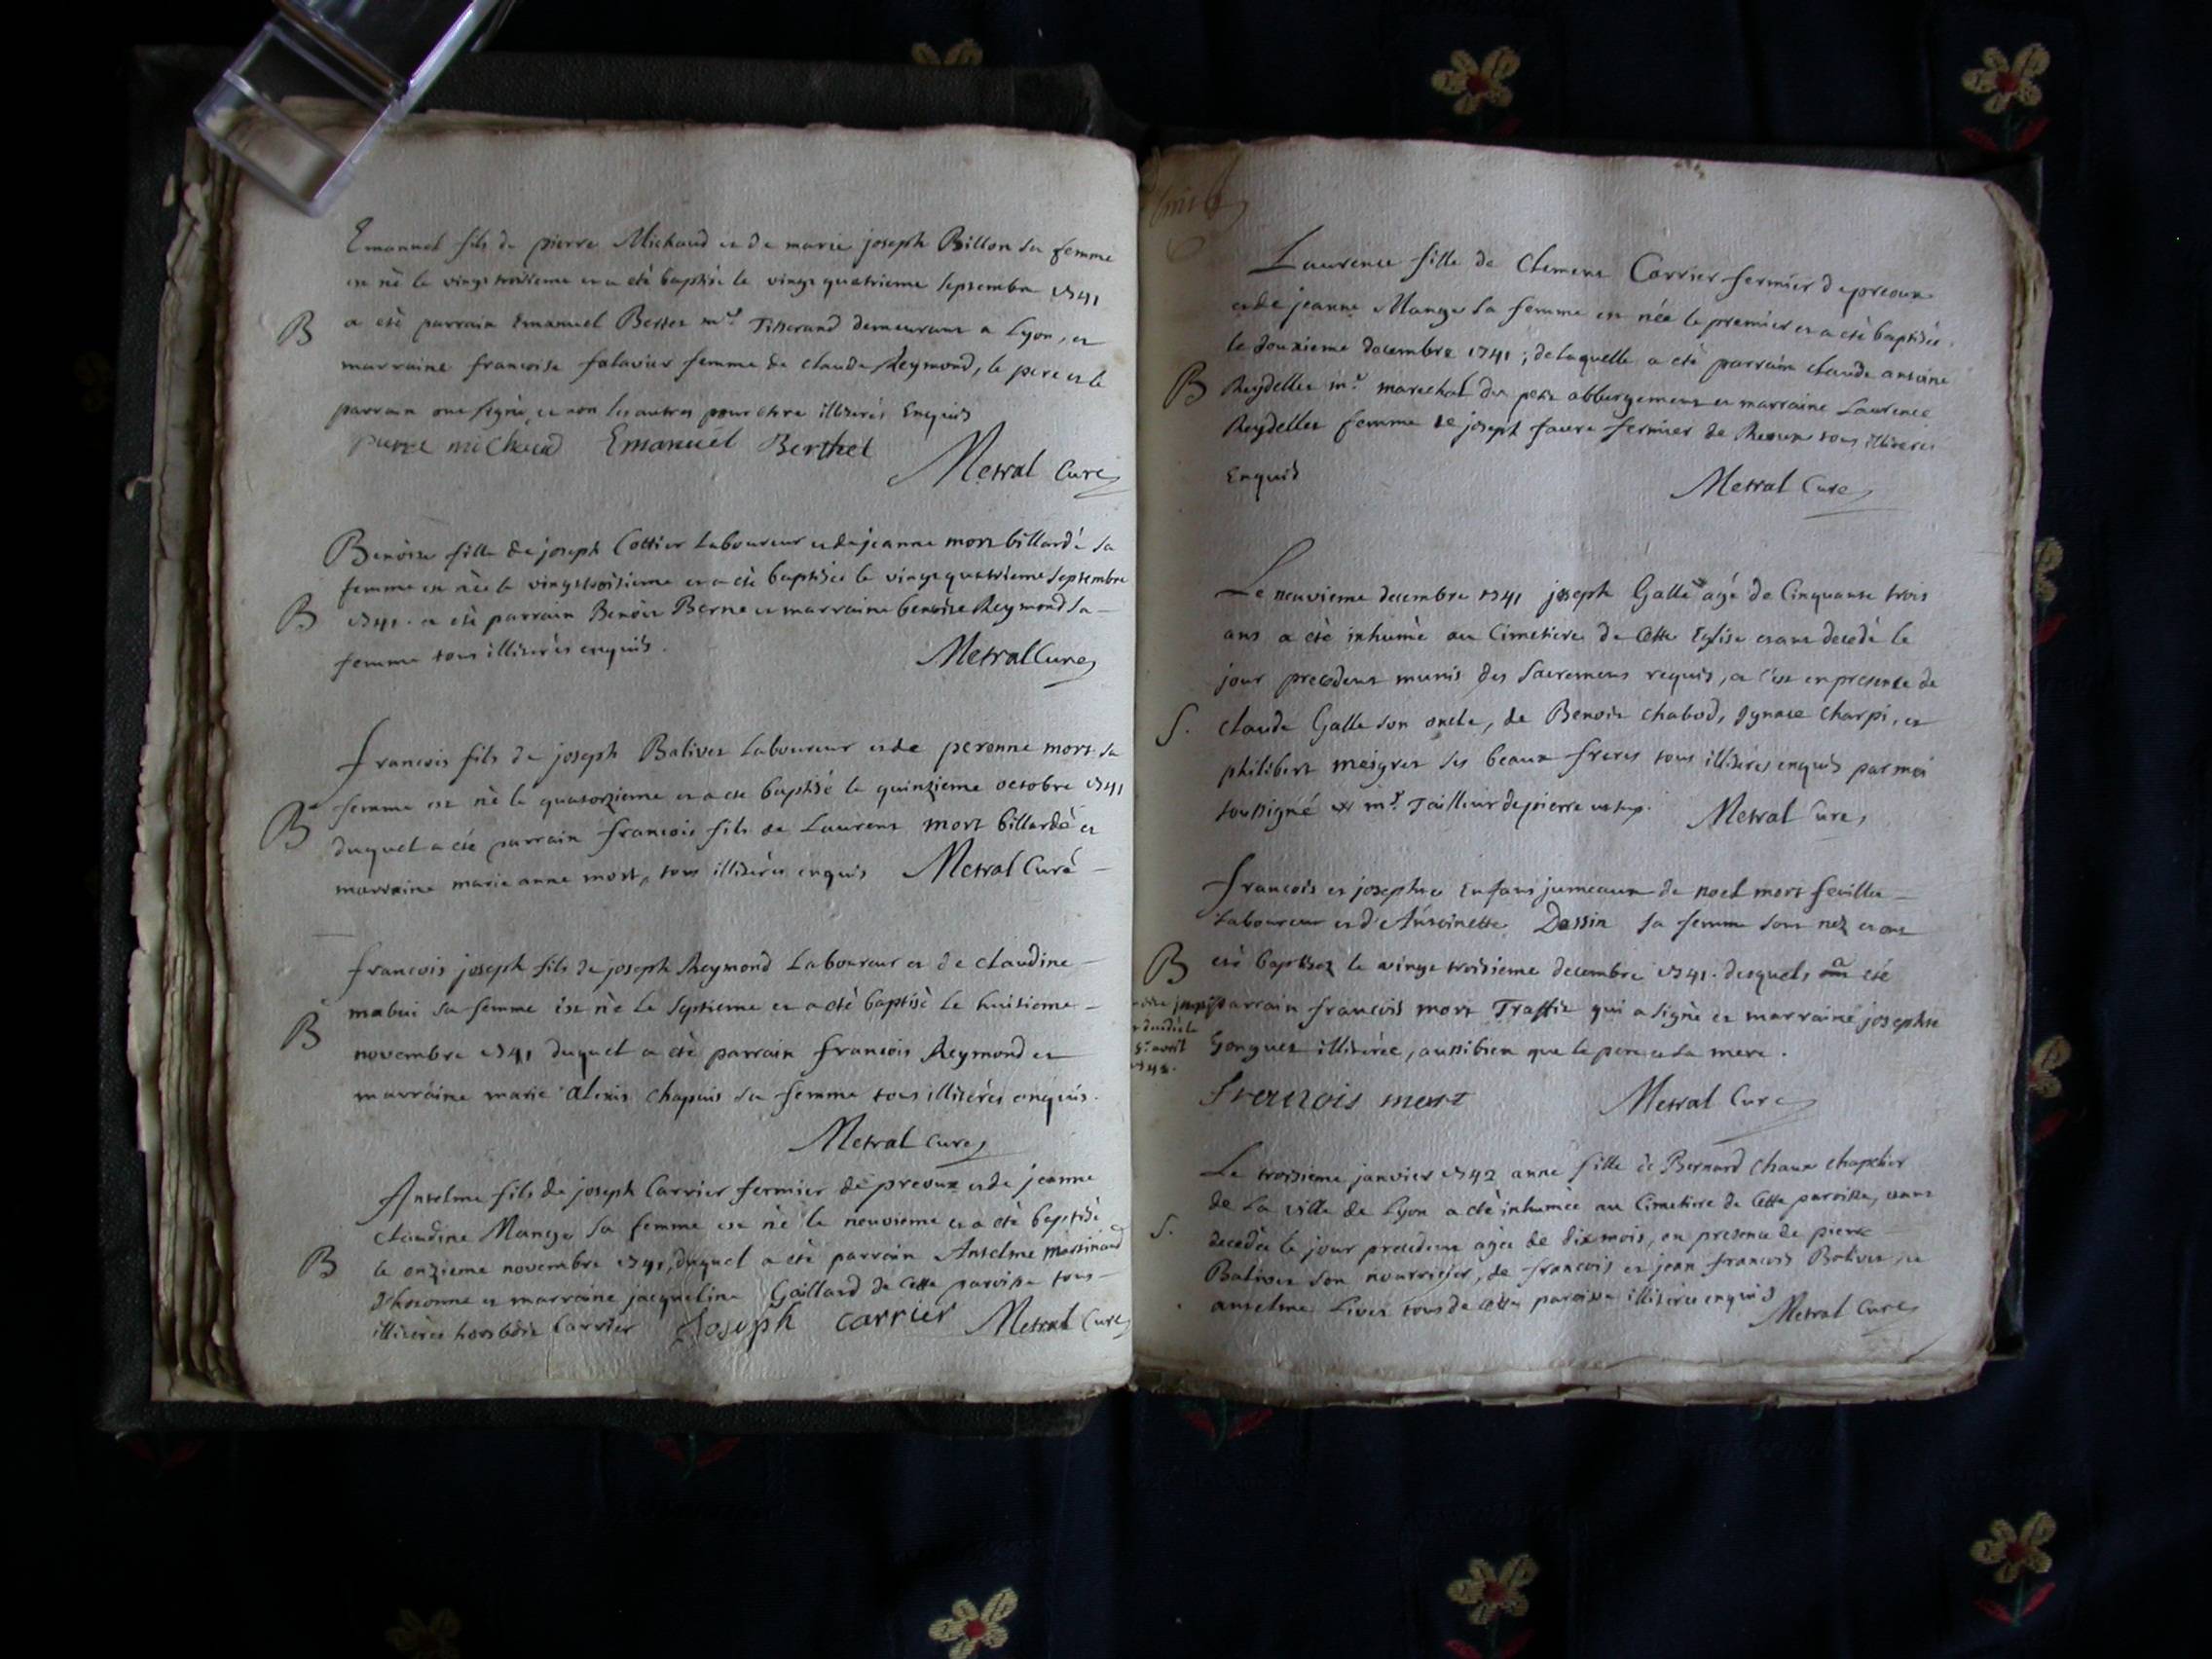 Emanuel fils de pierre Michaud et de marie joseph Billon sa femme
est né le vingt troisieme et a eté baptisé le vingt quatrieme septembre 1741
B
a eté parrain Emanuel Bertet mre Tisserand demeurant a Lyon, et
marraine francoise falavier femme de claude Reymond, le pere et le
parrain ont signé, et non les autres pour etre illiterés Enquis
pierre michaud Emanuël Berthet
Metral Curé
Benoite fille de joseph Cottier Laboureur et de jeanne mort billardé sa
femme est née le vingt troisieme et a eté baptisée le vingt quatrieme septembre
B
1741. a eté parrain Benoit Berne et marraine benoite Reymond sa
femme tous illiterés enquis.
Metral Curé
francois fils de joseph Balivet Laboureur et de peronne mort sa
femme est né le quatorzieme et a eté baptisé le quinzieme octobre 1741
B
duquel a eté parrain francois fils de Laurent mort billardé et
marraine marie anne mort, tous illiterés enquis Metral Curé
francois joseph fils de joseph Reymond Laboureur et de claudine
mabui sa femme est né le septieme et a eté baptisé le huitieme
B
novembre 1741 duquel a eté parrain francois Reymond et
marraine marie alexis chapuis sa femme tous illiterés enquis.
Metral Curé
Anselme fils de joseph Carrier fermier de preoux et de jeanne
claudine Mange sa femme est né le neuvieme et a eté baptisé
B
le onzieme novembre 1741, duquel a eté parrain Anselme martinand
d'hotonne et marraine jacqueline Gaillard de cette paroisse tous
illiterés horsledit Carrier Joseph carrier Metral Curé
Laurence fille de Clement Carrier fermier de preoux
et de jeanne Mange sa femme est née le premier et a eté baptisée
le douxieme decembre 1741; de laquelle a eté parrain claude antoine
B
Reydellet mre marechal du petit abbergement et marraine Laurence
Reydellet femme de joseph favre fermier de tous illiterés
Enquis
Metral Curé
Le neuvieme decembre 1741 joseph Galle agé de Cinquante trois
ans a eté inhumé au Cimetiere de Cette Eglise etant decedé le
jour precedent munis des Sacremens requis, a c'est en presence de
S.
claude Galle son oncle, de Benoit chabod, Ignace Charpi, et
philibert meigret ses beaux freres tous illiterés enquis par moi
soussigné mre Tailleur de pierre Metral Curé
francois et josephte Enfans jumeaux de noel mort feuillet
Laboureur et d'Antoinette Dassin sa femme sont nez et ont
B
eté baptisez le vingt troisieme decembre 1741. desquels a eté
parrain francois mort Traffit qui a signé et marraine josephte
Gonguet illiterée, aussi bien que le pere et la mere.
francois mort
Metral Curé
Le troisieme janvier 1742 anne fille de Bernard Chaux chapelier
de La ville de Lyon a eté inhumée au Cimetiere de Cette paroisse, etant
S.
decedée le jour precedent agée de dix mois, en presence de pierre
Balivet son nourricier, de francois et jean francois Balivet, et
anselme Livet tous de cette paroisse illiterés enquis
Metral Curé